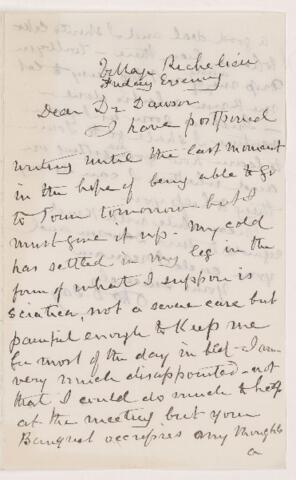 Village Richelieu
Friday Evening
Dear Dr Dawson
I have postponed
writing until the last moment
in the hope of being able to go
to Town tomorrow but I
must give it up. My cold
has settled in my leg in the
form of what I suppose is
Sciatica, not a severe case but
painful enough to keep me
for most of the day in bed - I am
very much disappointed - not
that I could do much to help
at the meeting but your
Banquet occupies my thoughts
a